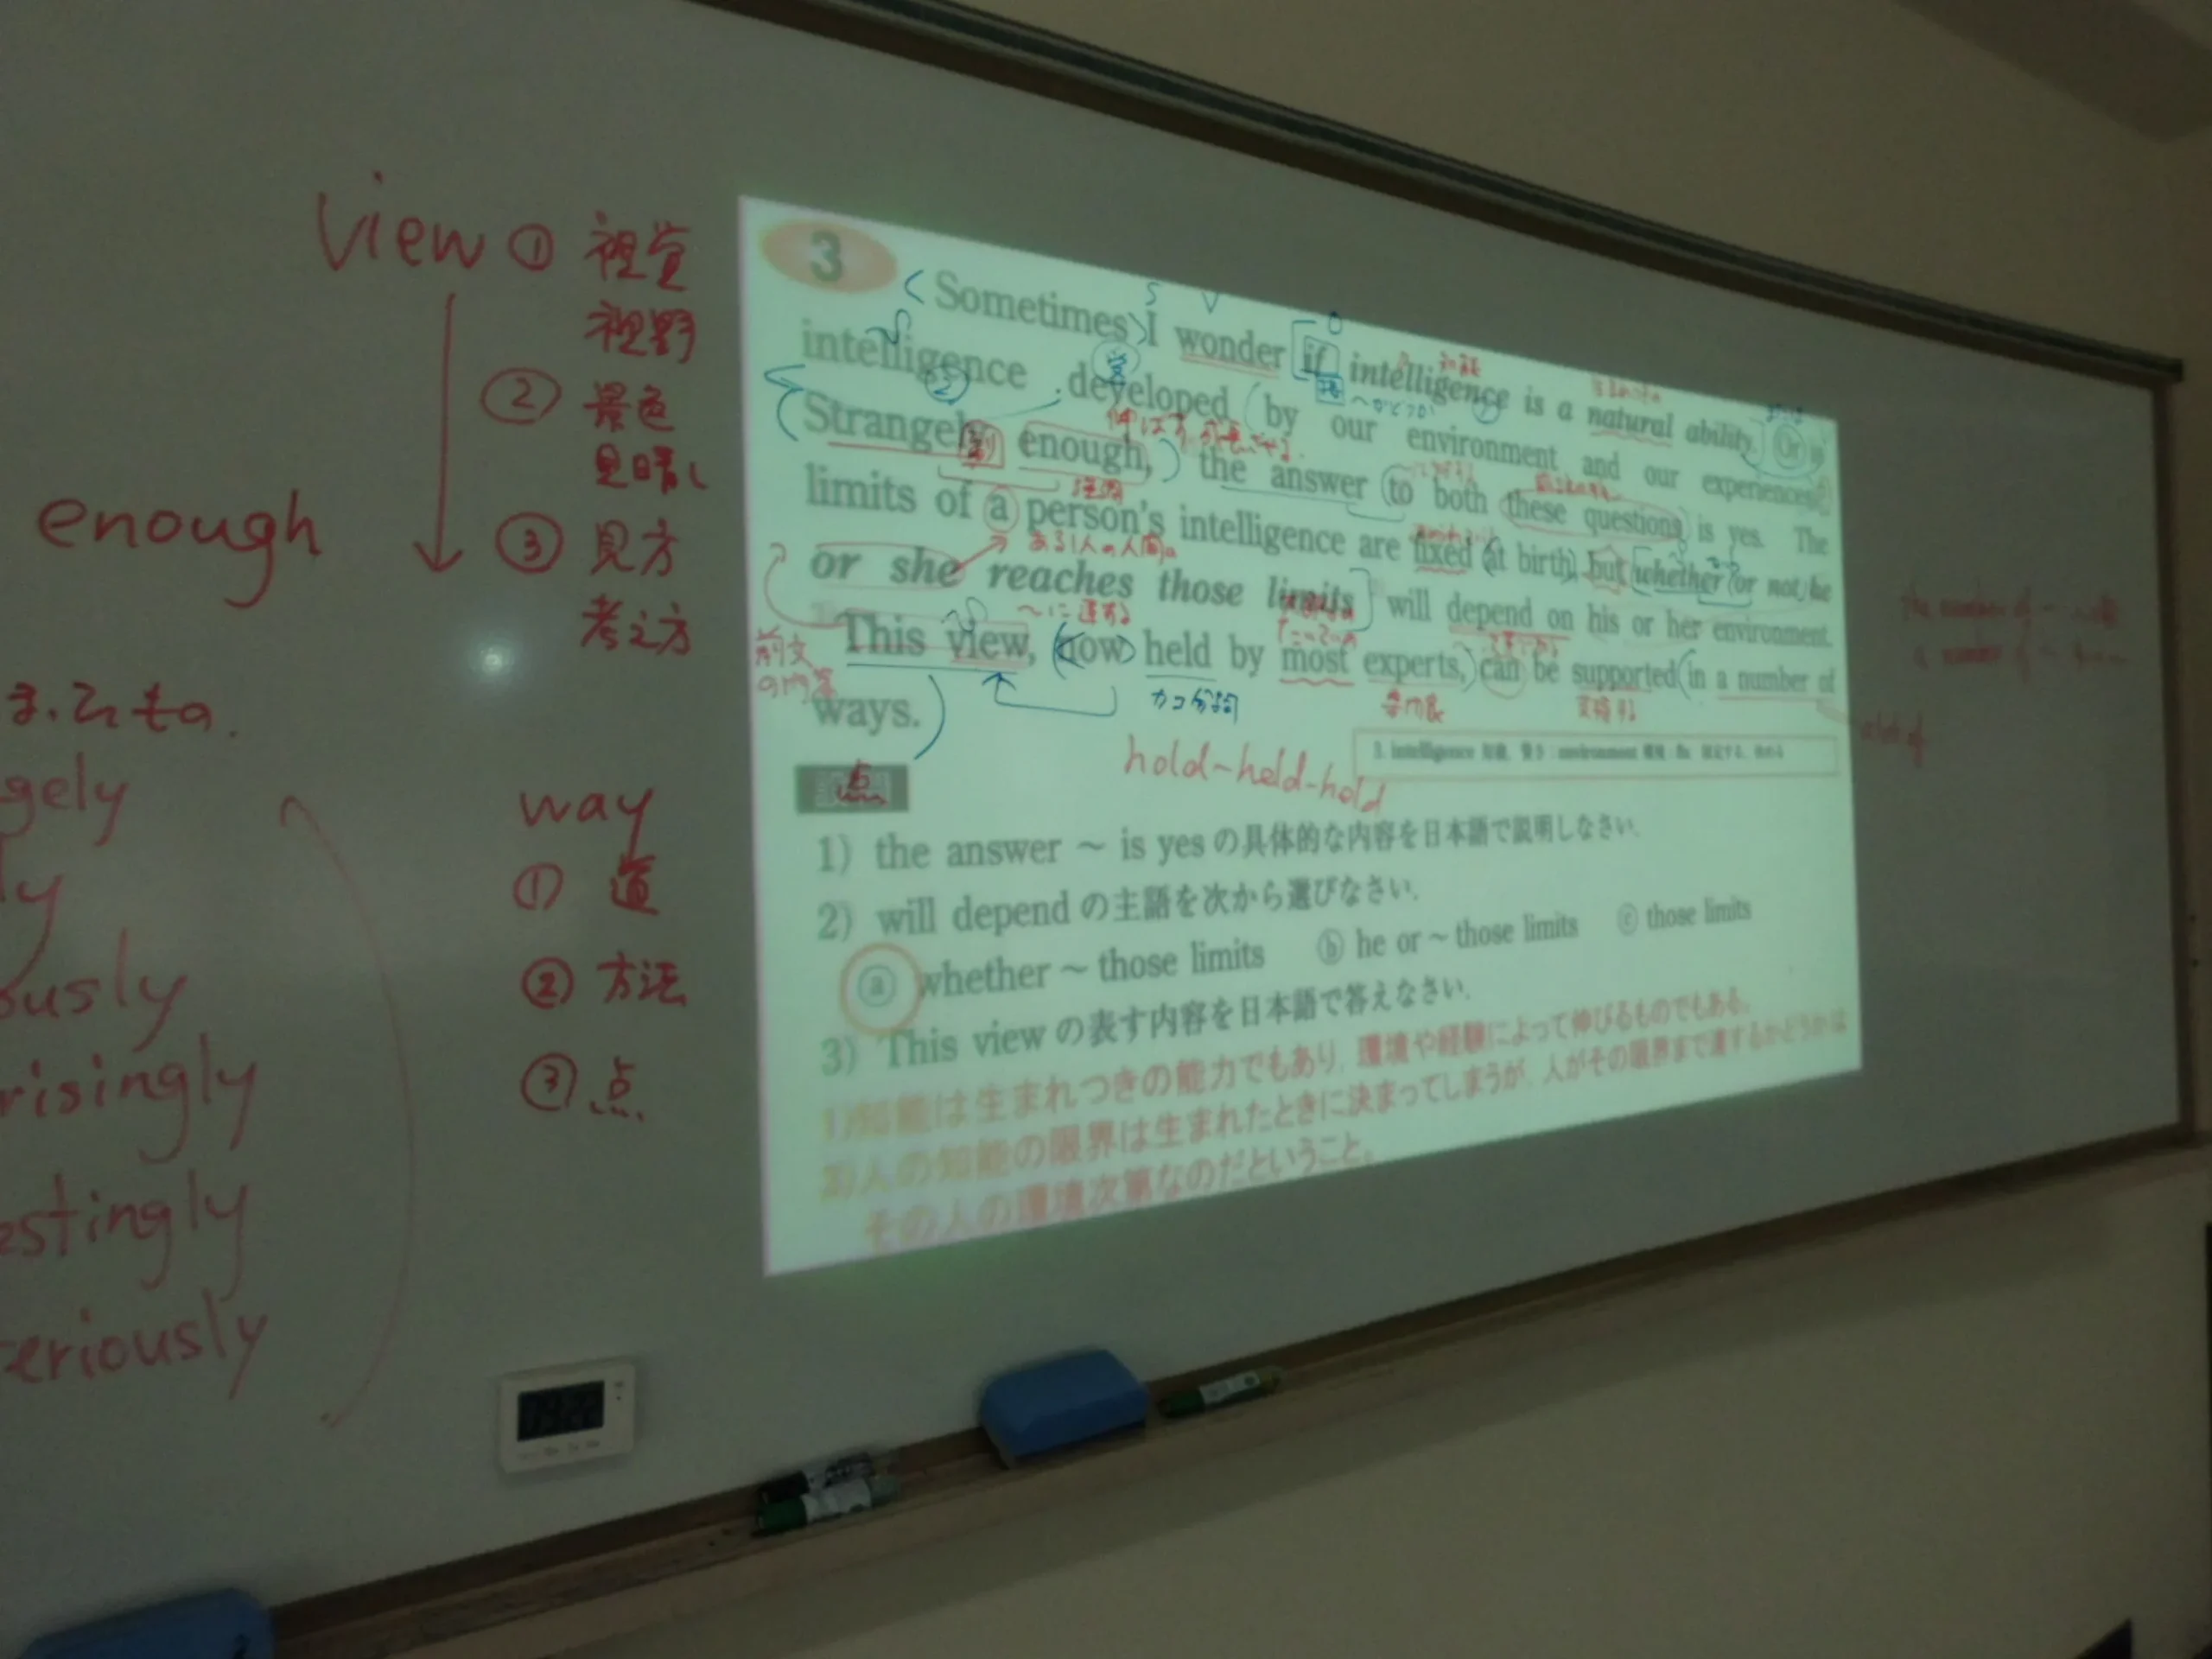 view ① 視覚
視野
② 景色
見晴し
③ 見方
考え方
enough
gely
ly
ously
risingly
estingly
eriously
way
① 道
② 方法
③ 点
3
Sometimes I wonder if intelligence is a natural ability. Or is
intelligence developed by our environment and our experiences?
Strangely enough, the answer to both these questions is yes. The
limits of a person's intelligence are fixed at birth, but whether or not he
or she reaches those limits will depend on his or her environment.
This view, now held by most experts, can be supported in a number of
ways.
副
逆接
ある1人の人間の
〜に達する
前文
の内容
カコ分詞
専門家
支持する
点
hold-held-hold
3. intelligence 知能, 賢さ : environment 環境 : fix 固定する, 決める
1) the answer ～ is yes の具体的な内容を日本語で説明しなさい.
2) will depend の主語を次から選びなさい.
ⓐ whether ～ those limits ⓑ he or ～ those limits ⓒ those limits
3) This view の表す内容を日本語で答えなさい.
1)知能は生まれつきの能力でもあり, 環境や経験によって伸びるものでもある。
3)人の知能の限界は生まれたときに決まってしまうが, 人がその限界まで達するかどうかは
その人の環境次第なのだということ。
the number of ～
a number of ～
a lot of